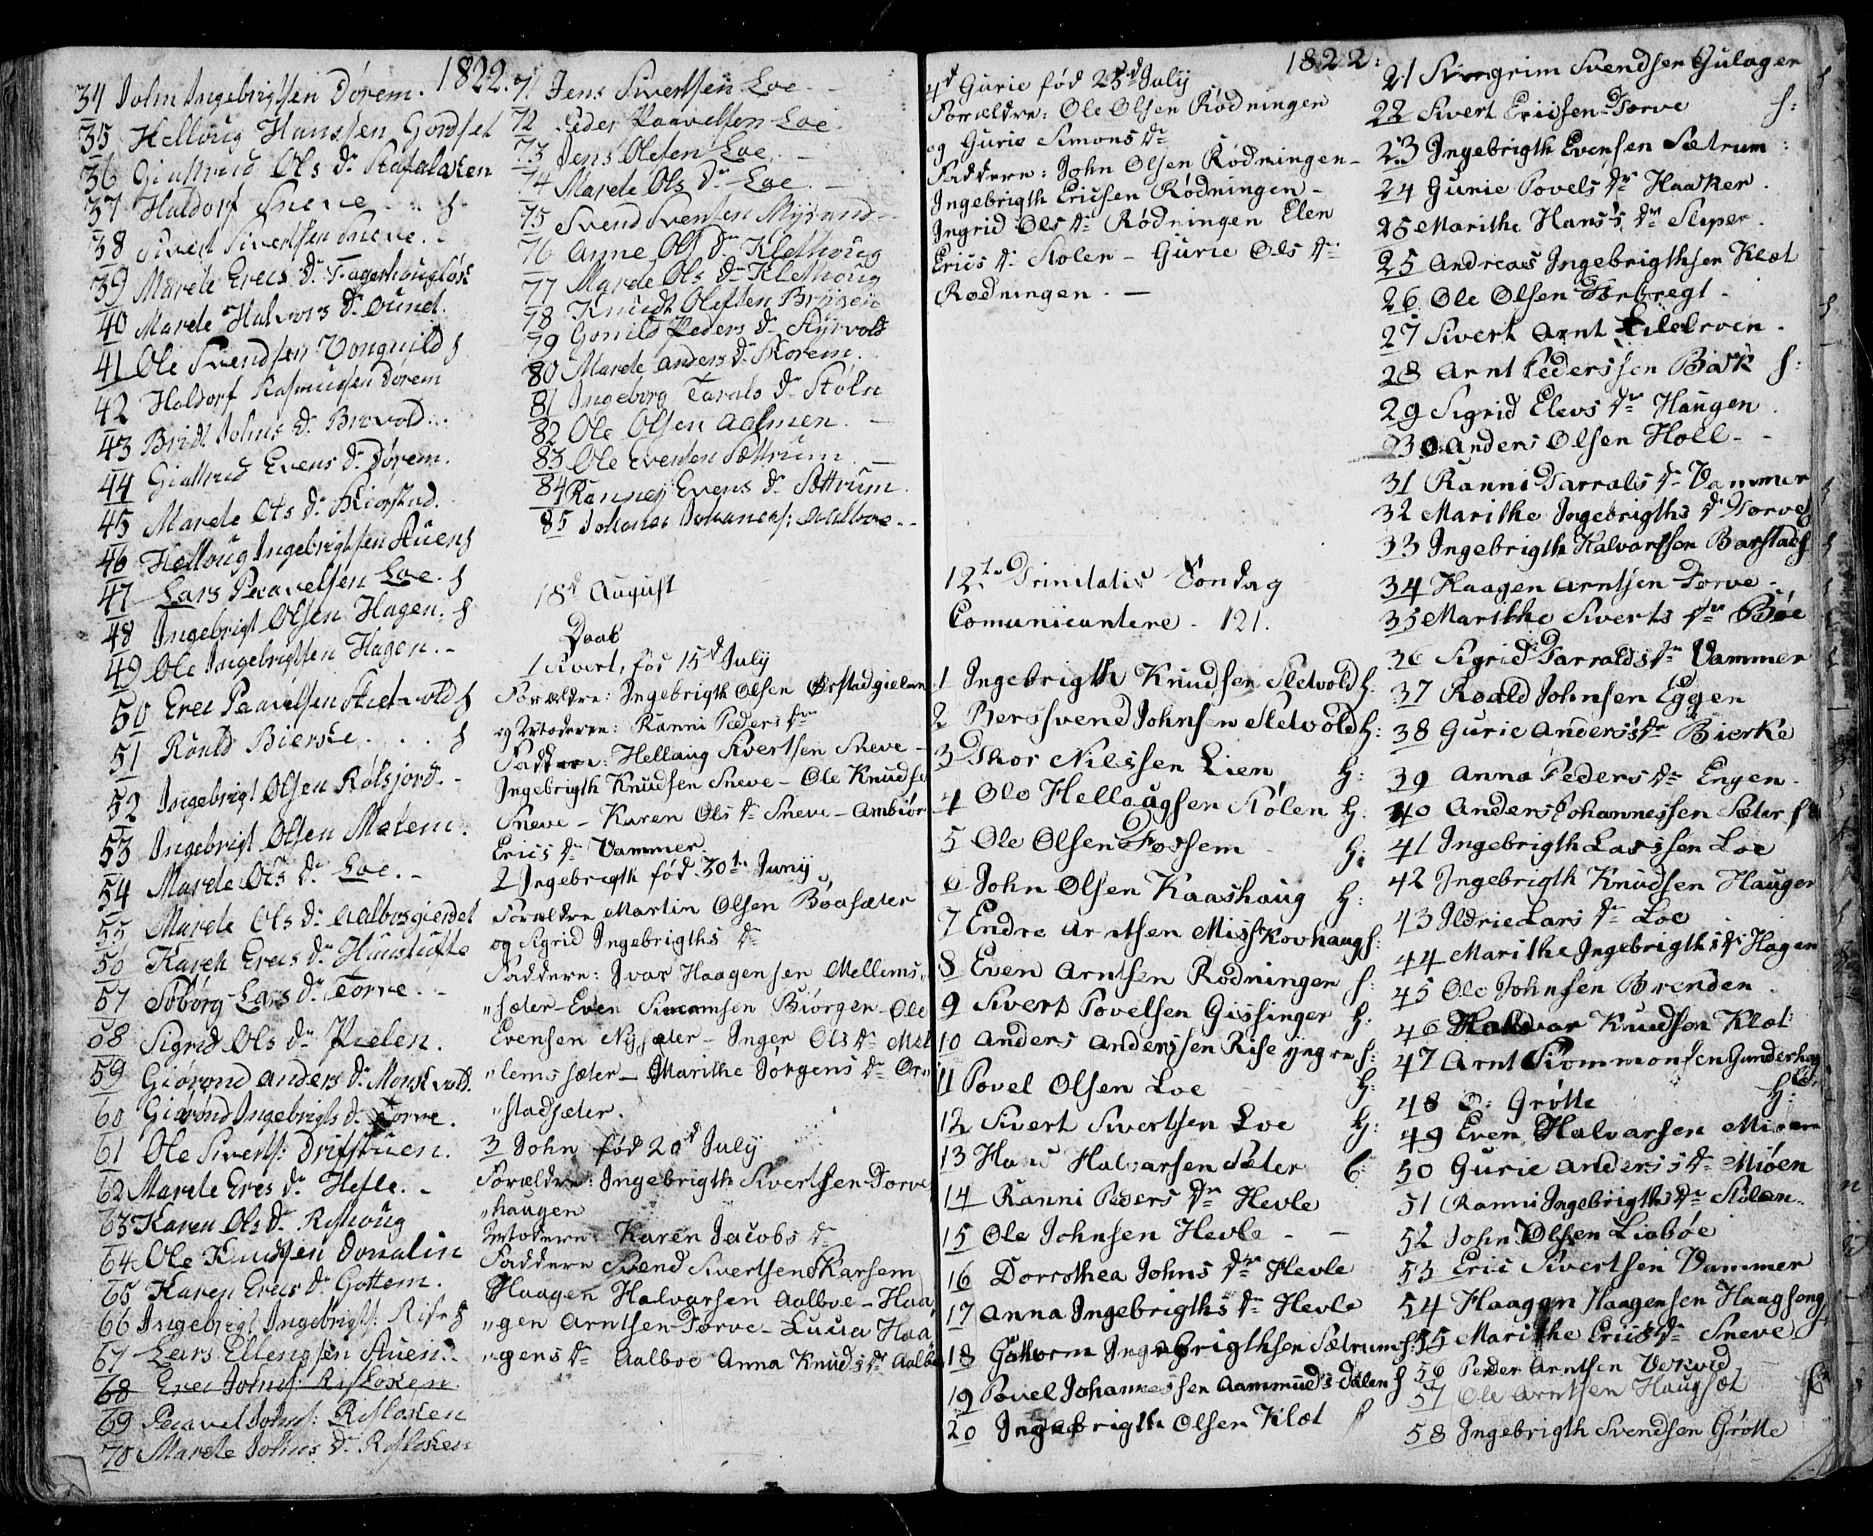 1822.
34 John Ingebrigtsen Dørem.
35 Helloug Hanssen Gordset
36 Giertrud Ols Dr
37 Haldorf Sneve . . . h
38 Sivert Sivertsen Sneve. -
39 Marete Erecs Dr
40 Marete Halvors Dr Ounet.
41 Ole Svendsen Vongnild h
42 Haldorf Rasmussen Dørem
43 Bridt Johns Dr
44 Giertrud Evens Dr Dørem.
45 Marete Ols Dr
46 Helloug Ingebrigtsen Stuen h
47 Lars Paavelsen Loe. h
48 Ingebrigt Olsen Hagen. h
49 Ole Ingebrigtsen Hagen. -
50 Erec Paavelsen h
51 Roald Bierke . . . h
52 Ingebrigt Olsen
53 Ingebrigt Olsen
54 Marete Ols Dr Loe. -
55 Marete Ols Dr
56 Karen Erecs Dr
57 Lars Dr Torve. -
58 Sigrid Ols Dr
59 Giørond Anders Dr
60 Giørond Ingebrigts Dr Torve.
61 Ole Siverts: Drifstuen.
62 Marete Erecs Dr Hefle. -
63 Karen Ols Dr Rishoug
64 Ole Knudsen Donalin
65 Karen Erecs Dr Gottem.
66 Ingebrigt Ingebrigts: Rise h
67 Lars Ellengsen Stuen. -
68 Erec Johns: Risloken.
69 Paavel Johns: Risloken
70 Marete Johns Dr Risloken
71 Jens Sivertsen Loe - -
72 Peder Paavelsen Loe.
73 Jens Olesen Loe. -
74 Marete Ols Dr Loe. -
75 Svend Svensen
76 Anne Ols Dr Klethoug
77 Marete Ols Dr Klethoug
78 Knudt Olefsen
79 Gonild Peders Dr
80 Marete Anders Dr
81 Ingeborg Taralds Dr Stølen
82 Ole Olsen Aalmen. -
83 Ole Evensen Sættrum. -
84 Rannei Evens Dr Sættrum.
85 Johanes Johanes: Aalboe. -
18d August
Daab
1 Sivert, fød 15d July
Forældre: Ingebrigth Olsen
og Moderen: Ranni Peders Dtr
Faddere: Hellaug Sivertsen Sneve -
Ingebrigth Knudsen Sneve - Ole Knudsen
Sneve - Karen Ols Dr Sneve - Ambiør
Erics Dr Vammer.
2 Ingebrigth fød 30te Junij
Forældre Martin Olsen Bøasæter
og Sigrid Ingebrigths Dr
Faddere: Ivar Haagensen Mellems„
„sæter - Even Simonsen Biørgen - Ole
Evensen Nysæter - Inger Ols Dr Mel
„lemssæter - Marithe Jørgens Dr Ør„
„stadsæter.
3 John fød 20d July
Forældre: Ingebrigth Sivertsen Torve
„haugen
Moderen: Karen Jacobs Dr
Faddere Svend Sivertsen Skarsem
Haagen Halvarsen Aalboe - Haa„
„gen Arntsen Torve - Lucia Haa
„gens Dr Aalboe Anna Knuds Dr Aalboe
1822.
4d Gurie fød 25d July
Forældre: Ole Olsen Rødningen
og Gurie Simons Dr
Faddere: John Olsen Rødningen -
Ingebrigth Ericsen Rødningen -
Ingrid Ols Dr Rødningen Elen
Erics Dr Stolen - Gurie Ols Dr
Rødningen. -
12te Trinitatis Søndag
Comunicantere - 121.
1 Ingebrigth Knudsen Sletvold h:
2 Berssvend Johnsen Sletvold h:
3 Thor Nilssen Lien h:
4 Ole Hellaugsen Stølen h:
5 Ole Olsen Fossem h:
6 John Olsen Kaashaug h:
7 Endre Arntsen h:
8 Even Arntsen Rødningen h:
9 Sivert Povelsen Gissinger h:
10 Anders Anderssen Rise yngre h:
11 Povel Olsen Loe h:
12 Sivert Sivertsen Loe h:
13 Hans Halvarsen Sæter 6:
14 Ranni Peders Dtr Hevle
15 Ole Johnsen Hevle - -
16 Dorothea Johns Dtr Hevle
17 Anna Ingebrigths Dr Hevle
18 Guttorm Ingebrigthsen Sætrum h:
19 Povel Johannessen Aammudsdalen h
20 Ingebrigth Olsen Klæt h
21 Svengrim Svendsen Gulager
22 Sivert Ericsen Torve h:
23 Ingebrigth Evensen Sætrum :
24 Gurie Povels Dtr Haaker.
25 Marithe Hans's Dtr Sliper.
25 Andreas Ingebrigthsen Klæt
26 Ole Olsen
27 Sivert Arnt
28 Arnt Pederssen Bask h:
29 Sigrid Elevs Dtr Haugen.
30 Anders Olsen Holl - -
31 Ranni Tarralds Dr Vammer
32 Marithe Ingebrigths Dr Torve h
33 Ingebrigth Halvarssen Barstad h
34 Haagen Arntsen Torve -
35 Marithe Siverts Dtr Bøe
36 Sigrid Tarralds Dtr Vammer
37 Roald Johnsen Eggen
38 Gurie Anders's Dtr Bierke
39 Anna Peders Dr Engen -
40 Anders Johannessen Sæter h
41 Ingebrigth Larssen Loe
42 Ingebrigth Knudsen Haugen
43 Ildrie Lars Dr Loe
44 Marithe Ingebrigths Dr Hagen
45 Ole Johnsen Brenden.
46 Haldvar Knudsen Klæt
47 Arnt Gunderhag
48 O: Grøtte h:
49 Even Halvarsen
50 Gurie Anders's Dr Miøen
51 Ranni Ingebrigths Dr Stølen.
52 John Olsen Liabøe
53 Eric Sivertsen Vammer
54 Haagen Haagensen Haagsong
55 Marithe Erics Dr Sneve
56 Peder Arntsen
57 Ole Arntsen Haugsæt
58 Ingebrigth Svendsen Grøtte